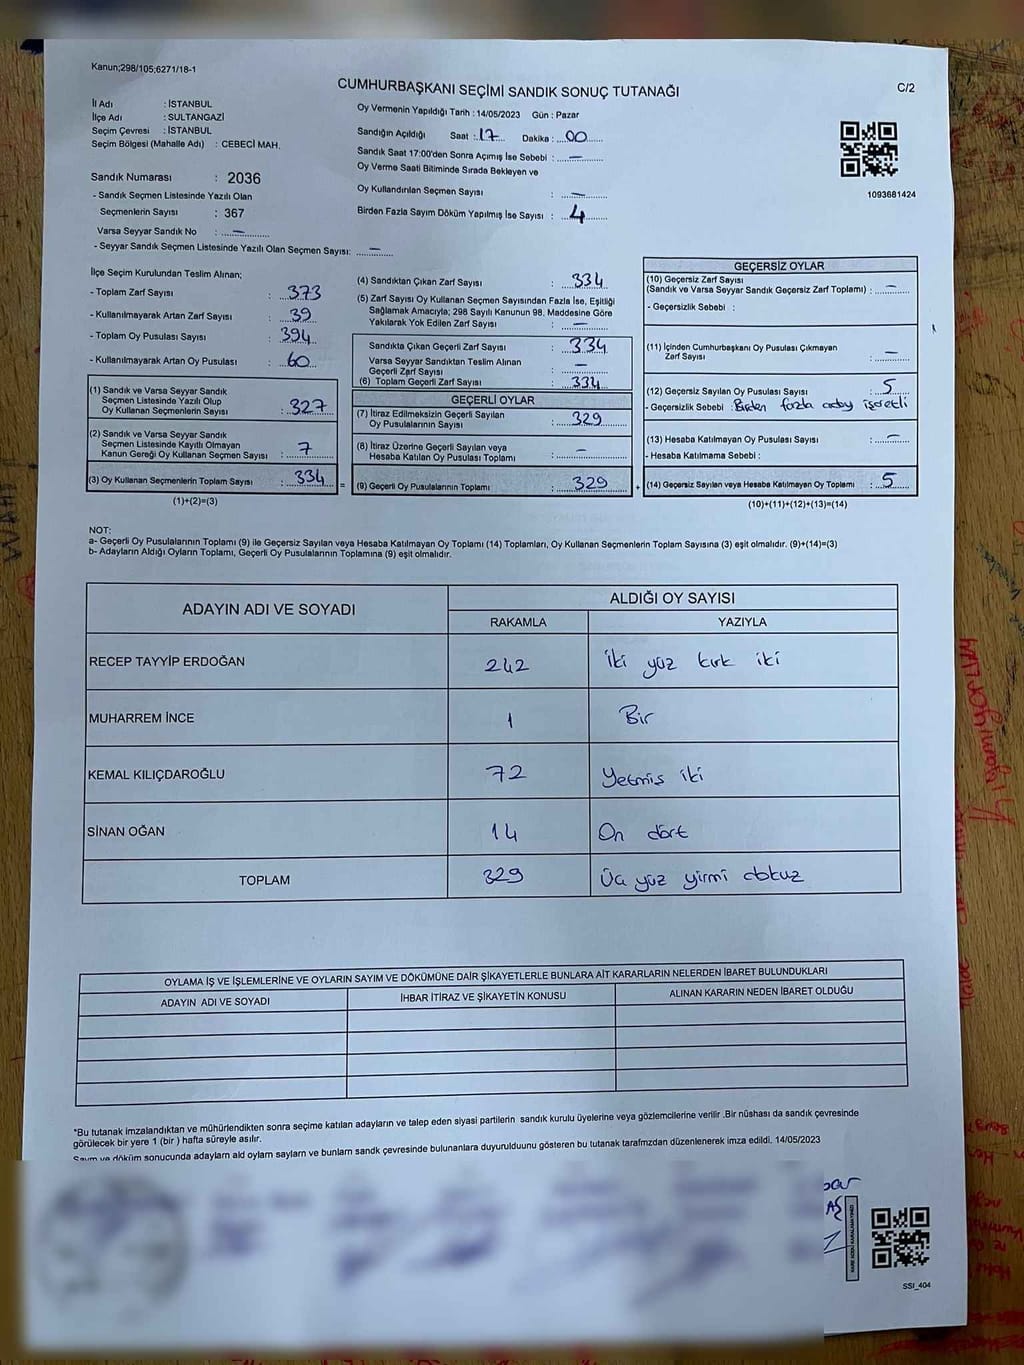 Kanun;298/105;6271/18-1
CUMHURBAŞKANI SEÇİMİ SANDIK SONUÇ TUTANAĞI
C/2
İl Adı : İSTANBUL
İlçe Adı : SULTANGAZİ
Seçim Çevresi : İSTANBUL
Seçim Bölgesi (Mahalle Adı) : CEBECİ MAH.
Sandık Numarası : 2036
- Sandık Seçmen Listesinde Yazılı Olan
Seçmenlerin Sayısı : 367
Varsa Seyyar Sandık No : —
- Seyyar Sandık Seçmen Listesinde Yazılı Olan Seçmen Sayısı: —
Oy Vermenin Yapıldığı Tarih : 14/05/2023 Gün : Pazar
Sandığın Açıldığı Saat : 17 Dakika : 00
Sandık Saat 17:00'den Sonra Açımış İse Sebebi : —
Oy Verme Saati Bitiminde Sırada Bekleyen ve
Oy Kullandırılan Seçmen Sayısı : —
Birden Fazla Sayım Döküm Yapılmış İse Sayısı : 4
1093681424
İlçe Seçim Kurulundan Teslim Alınan;
- Toplam Zarf Sayısı : 373
- Kullanılmayarak Artan Zarf Sayısı : 39
- Toplam Oy Pusulası Sayısı : 394
- Kullanılmayarak Artan Oy Pusulası : 60
(1) Sandık ve Varsa Seyyar Sandık
Seçmen Listesinde Yazılı Olup
Oy Kullanan Seçmenlerin Sayısı : 327
(2) Sandık ve Varsa Seyyar Sandık
Seçmen Listesinde Kayıtlı Olmayan
Kanun Gereği Oy Kullanan Seçmen Sayısı : 7
(3) Oy Kullanan Seçmenlerin Toplam Sayısı : 334
(1)+(2)=(3)
=
(4) Sandıktan Çıkan Zarf Sayısı : 334
(5) Zarf Sayısı Oy Kullanan Seçmen Sayısından Fazla İse, Eşitliği
Sağlamak Amacıyla; 298 Sayılı Kanunun 98. Maddesine Göre
Yakılarak Yok Edilen Zarf Sayısı : —
Sandıkta Çıkan Geçerli Zarf Sayısı : 334
Varsa Seyyar Sandıktan Teslim Alınan
Geçerli Zarf Sayısı : —
(6) Toplam Geçerli Zarf Sayısı : 334
GEÇERLİ OYLAR
(7) İtiraz Edilmeksizin Geçerli Sayılan
Oy Pusulalarının Sayısı : 329
(8) İtiraz Üzerine Geçerli Sayılan veya
Hesaba Katılan Oy Pusulası Toplamı : —
(9) Geçerli Oy Pusulalarının Toplamı : 329
+
GEÇERSİZ OYLAR
(10) Geçersiz Zarf Sayısı
(Sandık ve Varsa Seyyar Sandık Geçersiz Zarf Toplamı) : —
- Geçersizlik Sebebi :
(11) İçinden Cumhurbaşkanı Oy Pusulası Çıkmayan
Zarf Sayısı : —
(12) Geçersiz Sayılan Oy Pusulası Sayısı : 5
- Geçersizlik Sebebi : Birden fazla aday işaretli
(13) Hesaba Katılmayan Oy Pusulası Sayısı : —
- Hesaba Katılmama Sebebi :
(14) Geçersiz Sayılan veya Hesaba Katılmayan Oy Toplamı : 5
(10)+(11)+(12)+(13)=(14)
NOT:
a- Geçerli Oy Pusulalarının Toplamı (9) ile Geçersiz Sayılan veya Hesaba Katılmayan Oy Toplamı (14) Toplamları, Oy Kullanan Seçmenlerin Toplam Sayısına (3) eşit olmalıdır. (9)+(14)=(3)
b- Adayların Aldığı Oyların Toplamı, Geçerli Oy Pusulalarının Toplamına (9) eşit olmalıdır.
ADAYIN ADI VE SOYADI
ALDIĞI OY SAYISI
RAKAMLA YAZIYLA
RECEP TAYYİP ERDOĞAN 242 İki yüz kırk iki
MUHARREM İNCE 1 Bir
KEMAL KILIÇDAROĞLU 72 Yetmiş iki
SİNAN OĞAN 14 On dört
TOPLAM 329 Üç yüz yirmi dokuz
OYLAMA İŞ VE İŞLEMLERİNE VE OYLARIN SAYIM VE DÖKÜMÜNE DAİR ŞİKAYETLERLE BUNLARA AİT KARARLARIN NELERDEN İBARET BULUNDUKLARI
ADAYIN ADI VE SOYADI İHBAR İTİRAZ VE ŞİKAYETİN KONUSU ALINAN KARARIN NEDEN İBARET OLDUĞU
*Bu tutanak imzalandıktan ve mühürlendikten sonra seçime katılan adayların ve talep eden siyasi partilerin sandık kurulu üyelerine veya gözlemcilerine verilir .Bir nüshası da sandık çevresinde
görülecek bir yere 1 (bir ) hafta süreyle asılır.
Sayım ve döküm sonucunda adayların ald oyların sayları ve bunların sandk çevresinde bulunanlara duyurulduunu gösteren bu tutanak tarafmzdan düzenlenerek imza edildi. 14/05/2023
SSI_404